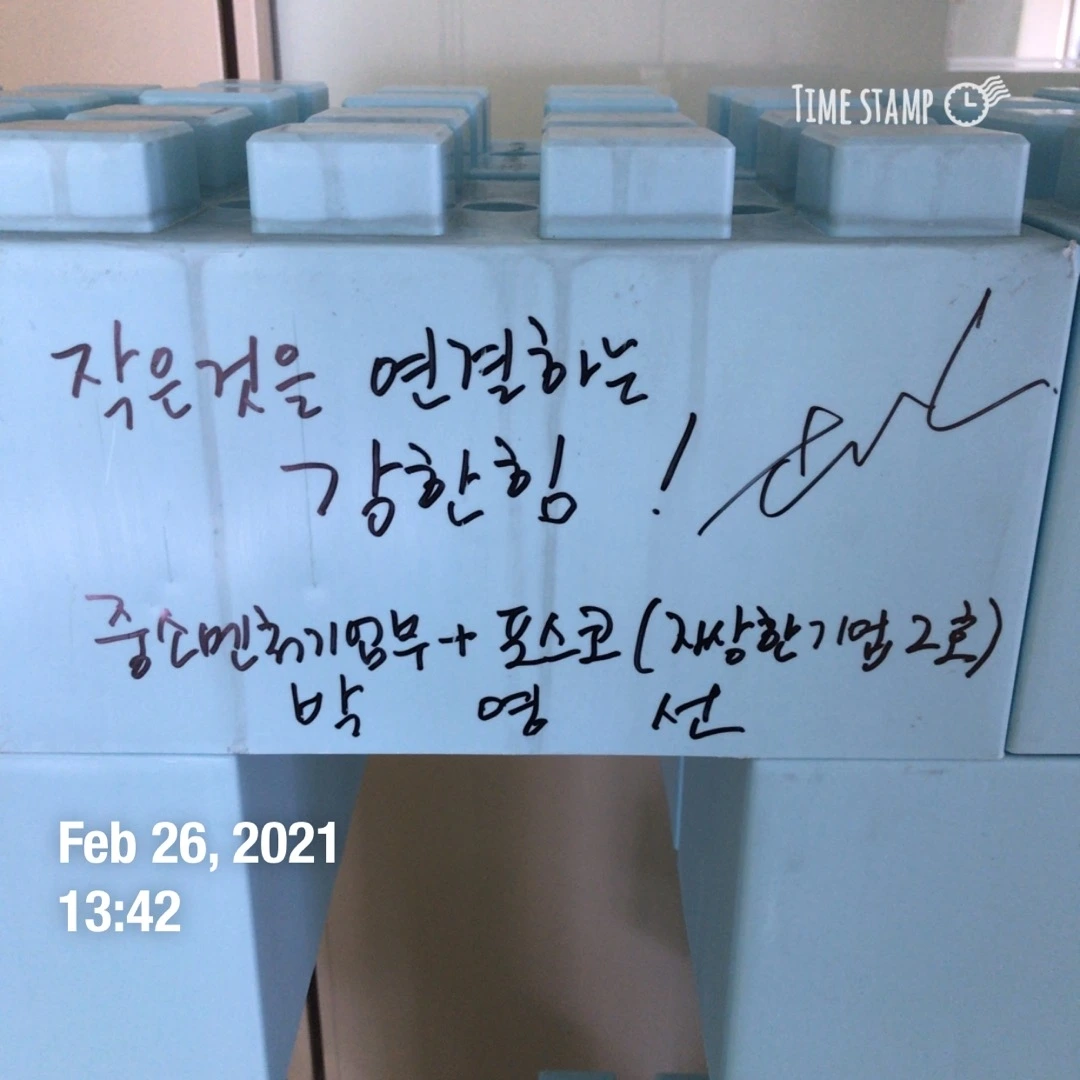 TIME STAMP
작은것을 연결하는
강한힘 !
중소벤처기업부 + 포스코 (자상한기업 2호)
박 영 선
Feb 26, 2021
13:42